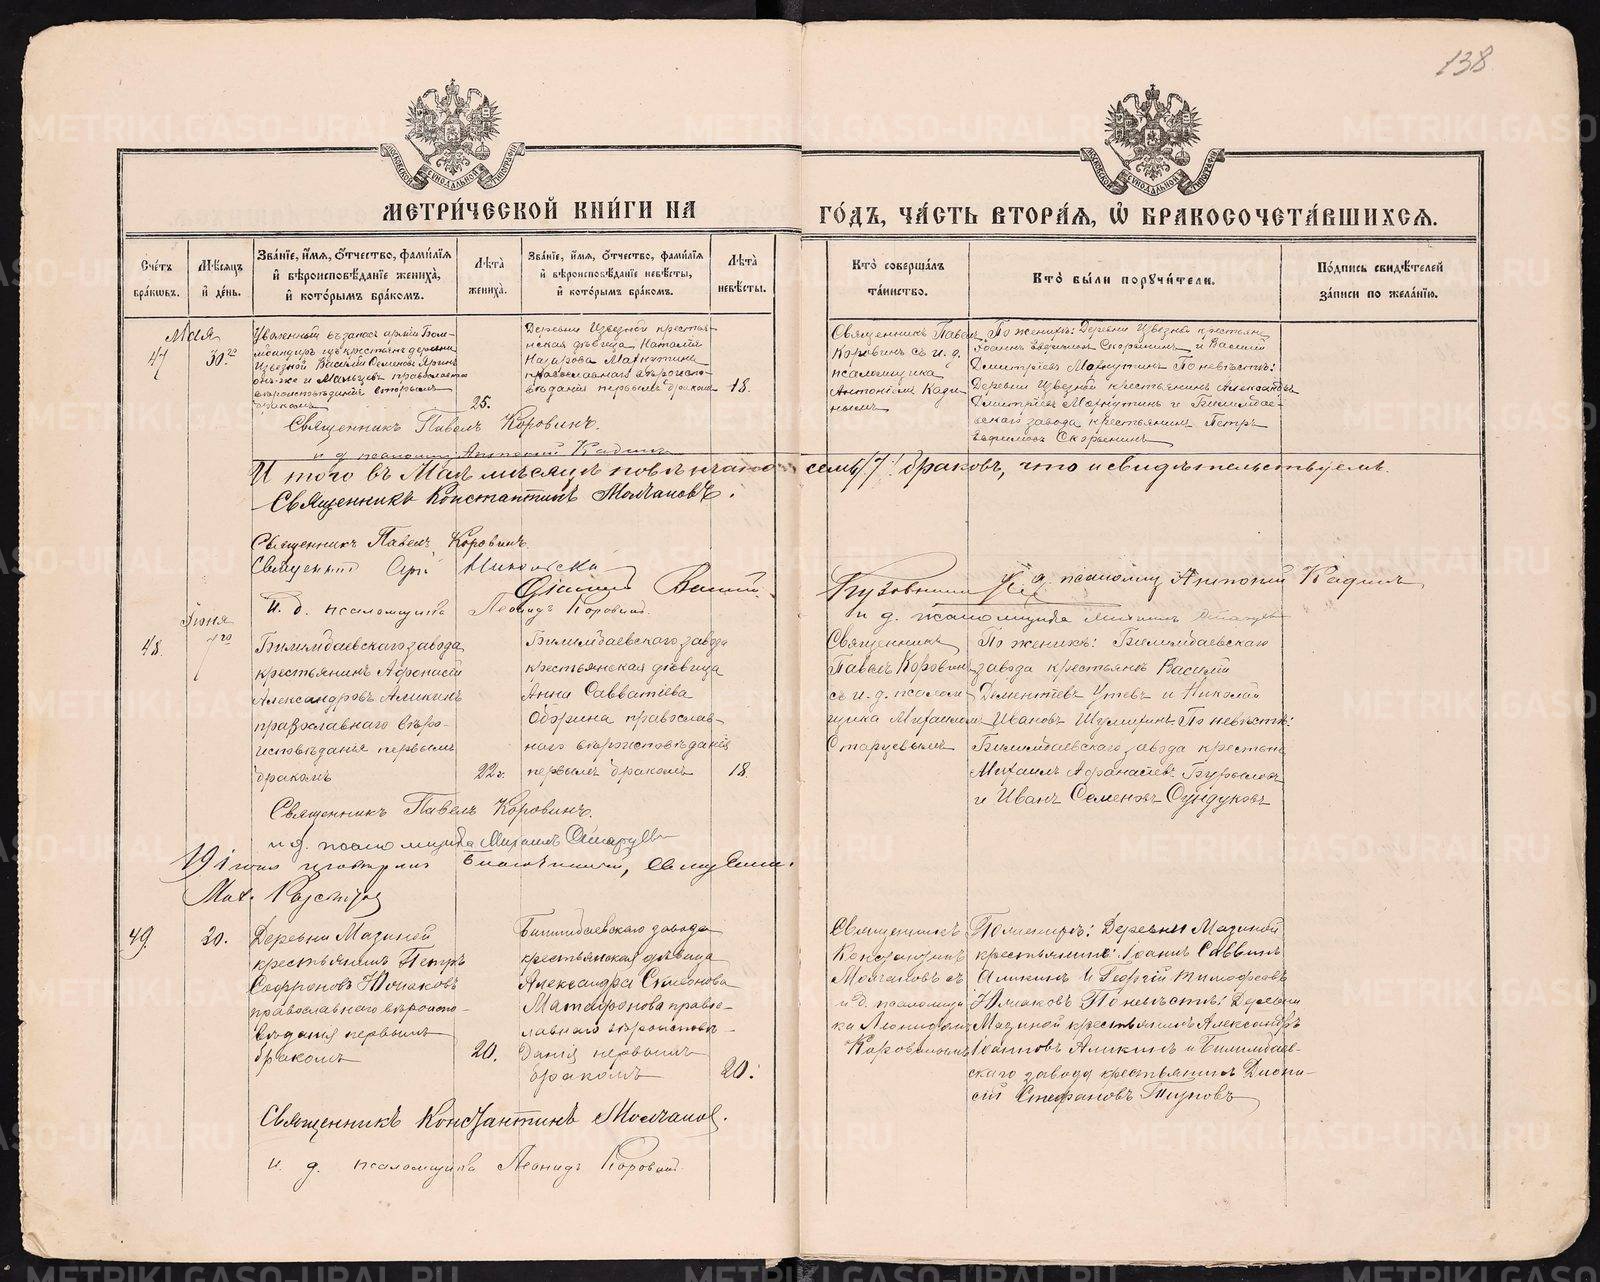 138
МОСКОВСКОЙ СѴНОДАЛЬНОЙ ТИПОГРАФІИ
МОСКОВСКОЙ СѴНОДАЛЬНОЙ ТИПОГРАФІИ
МЕТРИ́ЧЕСКОЙ КНИ́ГИ НА
ГО́ДЪ, ЧА́СТЬ ВТОРА́Я, Ѡ БРАКОСОЧЕТА́ВШИХСЯ.
Сче́тъ браковъ.
Мѣсяцъ и день.
Зва́ніе, и́мя, о́тчество, фами́лія и вѣроисповѣ́даніе жениха̀, и кото́рымъ бра́комъ.
Лѣта̀ жениха̀.
Зва́ніе, и́мя, о́тчество, фами́лія и вѣроисповѣ́даніе невѣ́сты, и кото́рымъ бра́комъ.
Лѣта̀ невѣ́сты.
Кто̀ соверша́лъ та́инство.
Кто̀ бы́ли поручи́тели.
По́дпись свидѣ́телей за́писи по жела́нію.
Мая
47
30
Уволенный въ запасъ арміи
крестьянъ деревни
Извезной Василій
православнаго
вѣроисповѣданія вторымъ
бракомъ
25.
Деревни Извезной крестья-
нская дѣвица Наталія
Назарова Махнутина
православнаго вѣроиспо-
вѣданія первымъ бракомъ
18.
Священникъ Павелъ
Коровинъ съ и. д.
псаломщика
Антоніемъ Кади-
нымъ
По женихѣ: Деревни Извезной крестьяне
Скорынинъ и Василій
Дмитріевъ Махнутинъ По невѣстѣ:
Деревни Извезной крестьянинъ Александръ
Дмитріевъ Махнутинъ и Билимбае-
вскаго завода крестьянинъ Петръ
Скорынинъ
Священникъ Павелъ Коровинъ.
и д псаломщ Антоній Кадинъ
Итого въ Маѣ мѣсяцѣ повѣнчано семь /7/ браковъ, что и свидѣтельствуемъ.
Священникъ Константинъ Молчановъ.
Священникъ Павелъ Коровинъ.
Священникъ
и. д. псаломщ Антоній Кадинъ
И. д. псаломщика Леонидъ Коровинъ.
и д. псаломщика Михаилъ
Іюня
48.
Билимбаевскаго завода
крестьянинъ
Александровъ Аликинъ
православнаго вѣро-
исповѣданія первымъ
бракомъ
22
Билимбаевскаго завода
крестьянская дѣвица
Анна Савватіева
Оборина православ-
наго вѣроисповѣданія
первымъ бракомъ
18.
Священникъ
Павелъ Коровинъ
съ и. д. псалом-
щика Михаиломъ
Старцевымъ
По женихѣ: Билимбаевскаго
завода крестьяне Василій
Дементіевъ Утевъ и Николай
Ивановъ Шумихинъ По невѣстѣ:
Билимбаевскаго завода крестьяне
Михаилъ Афанасіевъ
и Иванъ Семеновъ Сундуковъ
Священникъ Павелъ Коровинъ.
и д. псаломщика Михаилъ Старцевъ
49.
30.
Деревни Мазиной
крестьянинъ Петръ
Софроновъ Южаковъ
православнаго вѣроиспо-
вѣданія первымъ
бракомъ
20.
Билимбаевскаго завода
крестьянская дѣвица
Александра
Матафонова право-
славнаго вѣроисповѣ-
данія первымъ
бракомъ
20.
Священникъ
Константинъ
Молчановъ съ
и д. псаломщи-
ка Леонидомъ
Коровинымъ
По женихѣ: Деревни Мазиной
крестьяне: Іоаннъ Саввинъ
Аликинъ и Георгій Тимофеевъ
Южаковъ По невѣстѣ: Деревни
Мазиной крестьянинъ Александръ
Іоанновъ Аликинъ и Билимбаев-
скаго завода крестьянинъ Діони-
сій Стефановъ
Священникъ Константинъ Молчановъ.
и. д. псаломщика Леонидъ Коровинъ.
METRIKI.GASO-URAL.RU